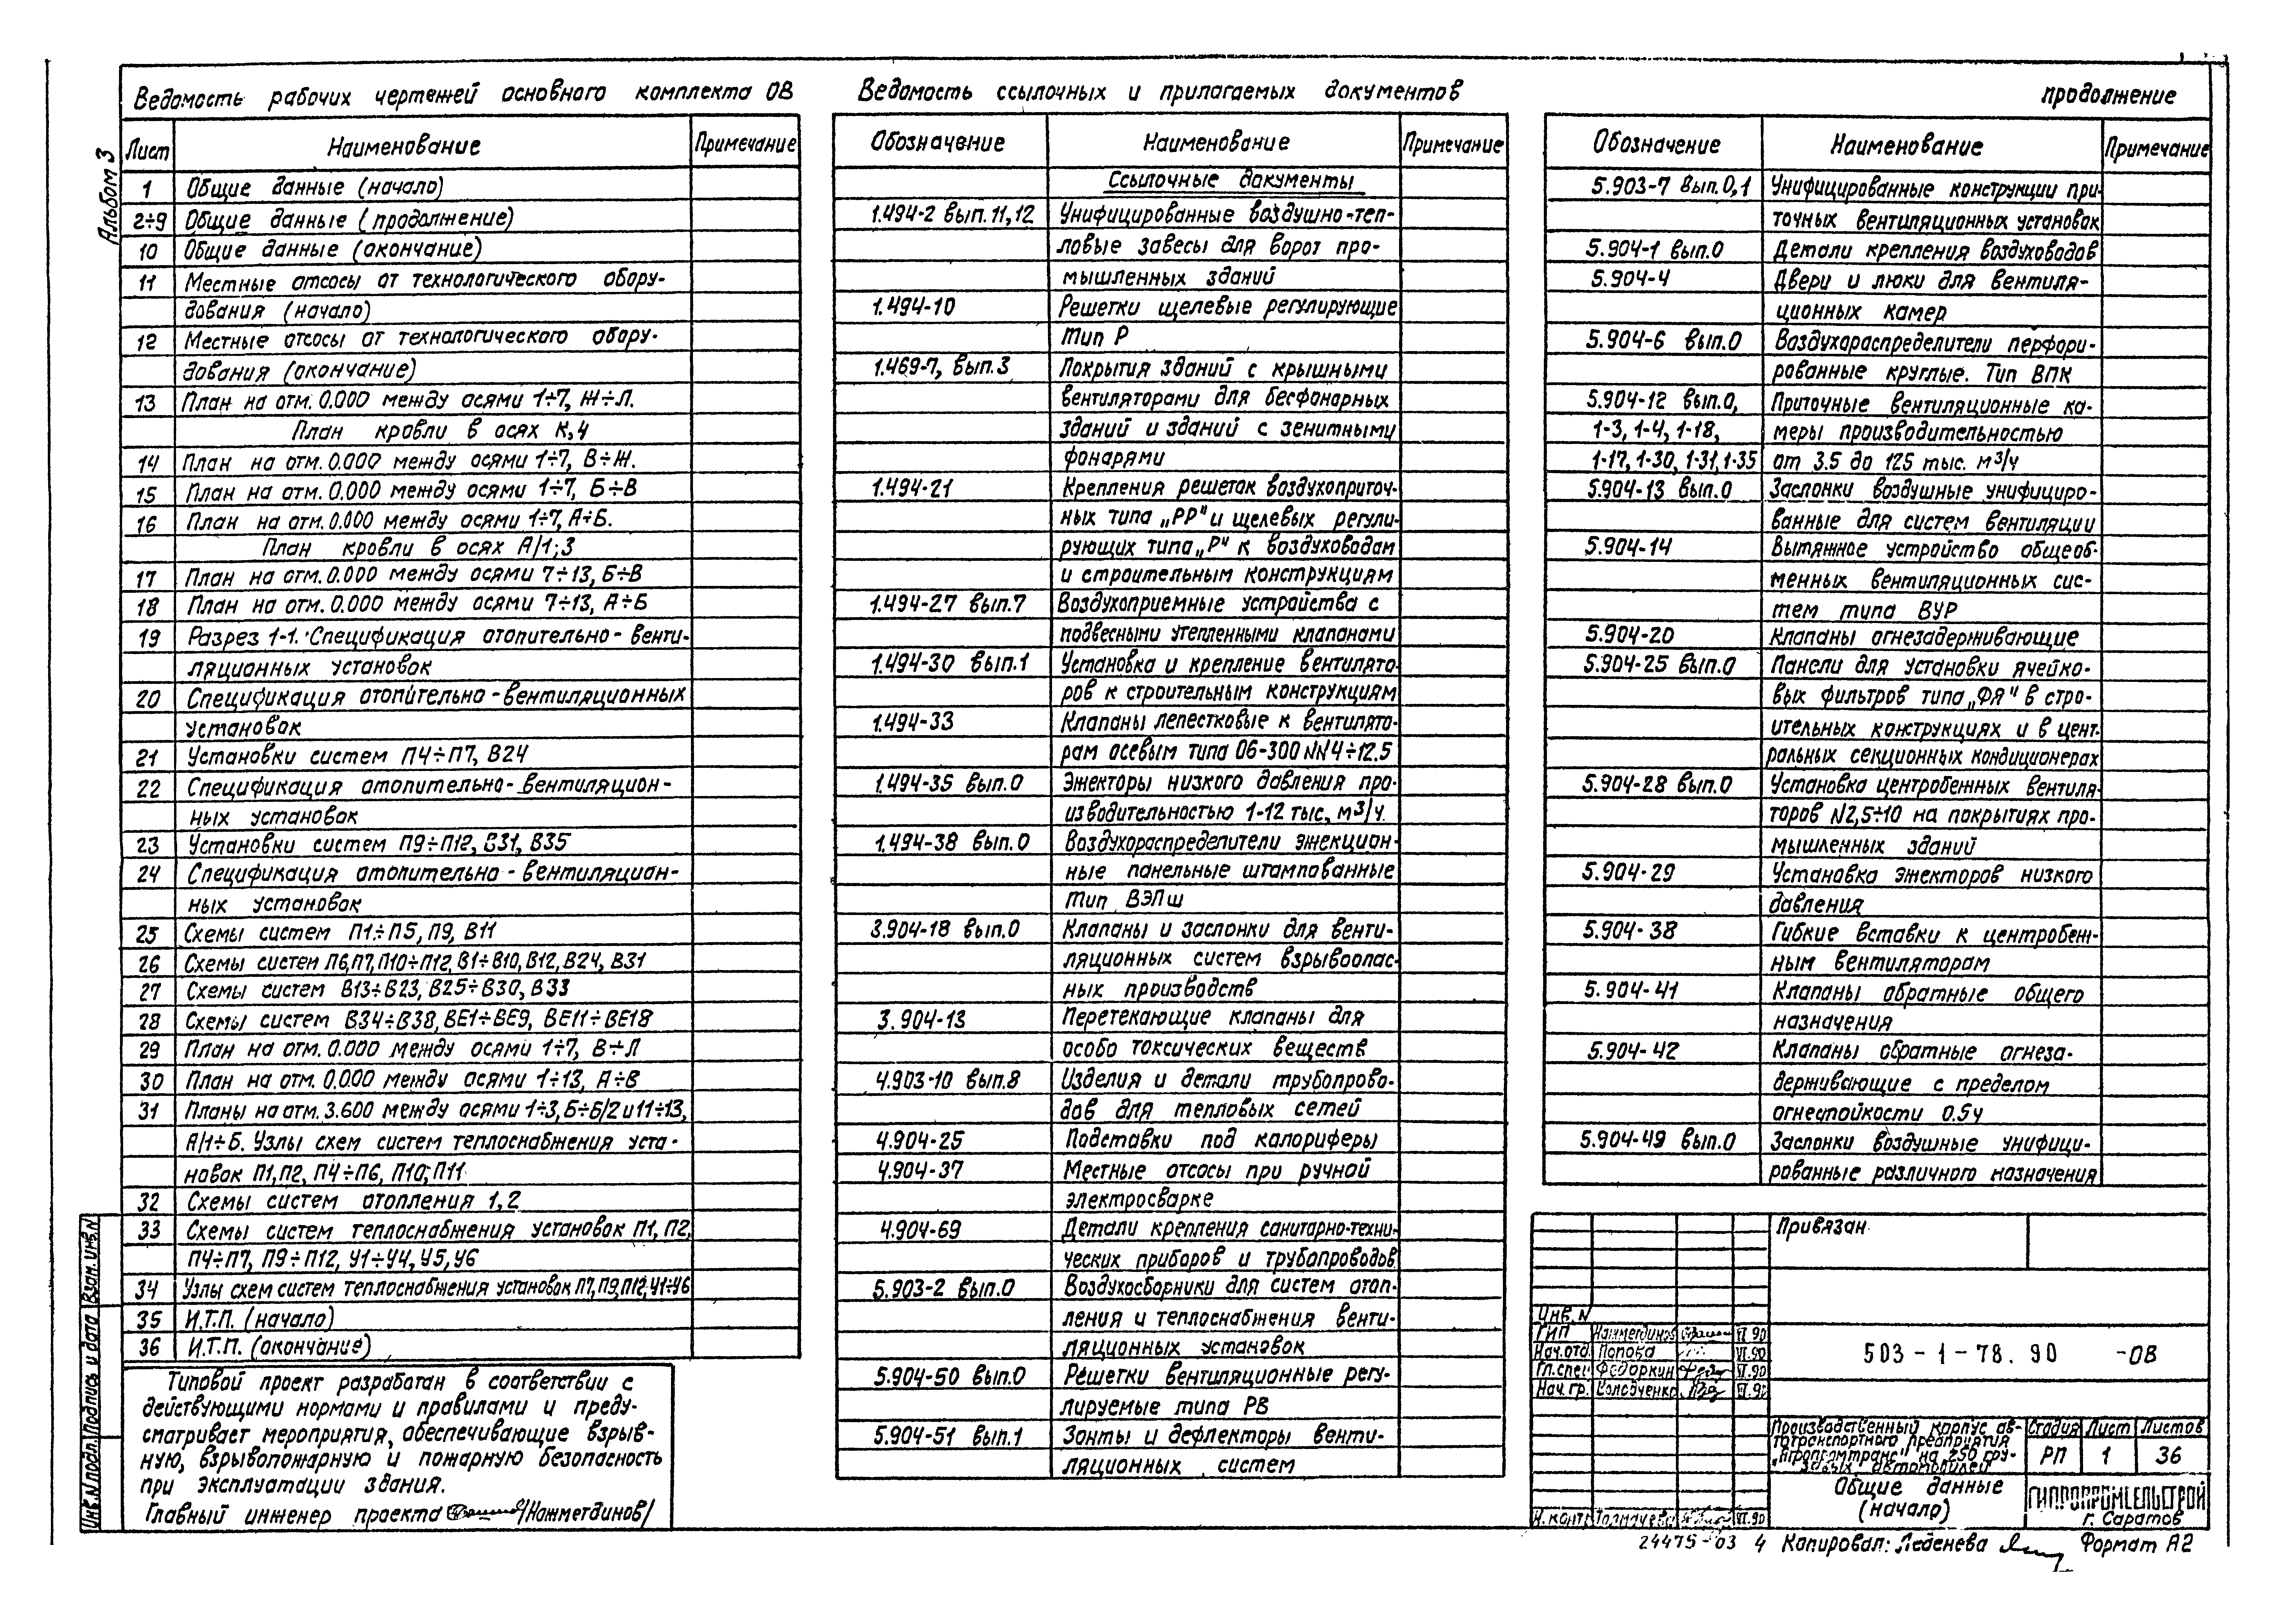 Альбом 3
Ведомость рабочих чертежей основного комплекта ОВ
Лист Наименование Примечание
1 Общие данные (начало)
2÷9 Общие данные (продолжение)
10 Общие данные (окончание)
11 Местные отсосы от технологического обору-
дования (начало)
12 Местные отсосы от технологического обору-
дования (окончание)
13 План на отм. 0.000 между осями 1÷7, Ж÷Л.
План кровли в осях К,4
14 План на отм. 0.000 между осями 1÷7, В÷Ж.
15 План на отм. 0.000 между осями 1÷7, Б÷В
16 План на отм. 0.000 между осями 1÷7, А÷Б.
План кровли в осях А/1;3
17 План на отм. 0.000 между осями 7÷13, Б÷В
18 План на отм. 0.000 между осями 7÷13, А÷Б
19 Разрез 1-1. Спецификация отопительно-венти-
ляционных установок
20 Спецификация отопительно-вентиляционных
установок
21 Установки систем П4÷П7, В24
22 Спецификация отопительно-вентиляцион-
ных установок
23 Установки систем П9÷П12, В31, В35
24 Спецификация отопительно-вентиляцион-
ных установок
25 Схемы систем П1÷П5, П9, В11
26 Схемы систем П6,П7,П10÷П12,В1÷В10,В12,В24,В31
27 Схемы систем В13÷В23, В25÷В30, В33
28 Схемы систем В34÷В38, ВЕ1÷ВЕ9, ВЕ11÷ВЕ18
29 План на отм. 0.000 между осями 1÷7, В÷Л
30 План на отм. 0.000 между осями 1÷13, А÷В
31 Планы на отм. 3.600 между осями 1÷3, Б÷Б/2 и 11÷13,
А/1÷Б. Узлы схем систем теплоснабжения уста-
новок П1,П2, П4÷П6, П10,П11
32 Схемы систем отопления 1,2
33 Схемы систем теплоснабжения установок П1, П2,
П4÷П7, П9÷П12, У1÷У4, У5, У6
34 Узлы схем систем теплоснабжения установок П7,П9,П12,У1÷У6
35 И.Т.П. (начало)
36 И.Т.П. (окончание)
Типовой проект разработан в соответствии с
действующими нормами и правилами и преду-
сматривает мероприятия, обеспечивающие взрыв-
ную, взрывопожарную и пожарную безопасность
при эксплуатации здания.
Главный инженер проекта /Нажметдинов/
Ведомость ссылочных и прилагаемых документов
Обозначение Наименование Примечание
Ссылочные документы
1.494-2 вып. 11, 12 Унифицированные воздушно-теп-
ловые завесы для ворот про-
мышленных зданий
1.494-10 Решетки щелевые регулирующие
Тип Р
1.469-7, вып.3 Покрытия зданий с крышными
вентиляторами для бесфонарных
зданий и зданий с зенитными
фонарями
1.494-21 Крепления решеток воздухоприточ-
ных типа „РР" и щелевых регули-
рующих типа „Р" к воздуховодам
и строительным конструкциям
1.494-27 вып.7 Воздухоприемные устройства с
подвесными утепленными клапанами
1.494-30 вып.1 Установка и крепление вентилято-
ров к строительным конструкциям
1.494-33 Клапаны лепестковые к вентилято-
рам осевым типа 06-300 NN4÷12.5
1.494-35 вып.0 Эжекторы низкого давления про-
изводительностью 1-12 тыс, м3/ч
1.494-38 вып.0 Воздухораспределители эжекцион-
ные панельные штампованные
Тип ВЭПш
3.904-18 вып.0 Клапаны и заслонки для венти-
ляционных систем взрывоопас-
ных производств
3.904-13 Перетекающие клапаны для
особо токсических веществ
4.903-10 вып.8 Изделия и детали трубопрово-
дов для тепловых сетей
4.904-25 Подставки под калориферы
4.904-37 Местные отсосы при ручной
электросварке
4.904-69 Детали крепления санитарно-техни-
ческих приборов и трубопроводов
5.903-2 вып.0 Воздухосборники для систем отоп-
ления и теплоснабжения венти-
ляционных установок
5.904-50 вып.0 Решетки вентиляционные регу-
лируемые типа РВ
5.904-51 вып.1 Зонты и дефлекторы венти-
ляционных систем
продолжение
Обозначение Наименование Примечание
5.903-7 вып.0,1 Унифицированные конструкции при-
точных вентиляционных установок
5.904-1 вып.0 Детали крепления воздуховодов
5.904-4 Двери и люки для вентиля-
ционных камер
5.904-6 вып.0 Воздухораспределители перфори-
рованные круглые. Тип ВПК
5.904-12 вып.0, Приточные вентиляционные ка-
1-3, 1-4, 1-18, меры производительностью
1-17, 1-30, 1-31, 1-35 от 3.5 до 125 тыс. м3/ч
5.904-13 вып.0 Заслонки воздушные унифициро-
ванные для систем вентиляции
5.904-14 Вытяжное устройство общеоб-
менных вентиляционных сис-
тем типа ВУР
5.904-20 Клапаны огнезадерживающие
5.904-25 вып.0 Панели для установки ячейко-
вых фильтров типа „ФЯ" в стро-
ительных конструкциях и в цент-
ральных секционных кондиционерах
5.904-28 вып.0 Установка центробежных вентиля-
торов N2,5÷10 на покрытиях про-
мышленных зданий
5.904-29 Установка эжекторов низкого
давления
5.904-38 Гибкие вставки к центробеж-
ным вентиляторам
5.904-41 Клапаны обратные общего
назначения
5.904-42 Клапаны обратные огнеза-
держивающие с пределом
огнестойкости 0.5ч
5.904-49 вып.0 Заслонки воздушные унифици-
рованные различного назначения
Привязан
Инв. N
ГИП Нажметдинов VI 90
Нач.отд. Попова VI.90
Гл.спец Федоркин VI.90
Нач. гр. Колодченко VI.90
Н. контр Толмачева VI.90
503-1-78.90 -ОВ
Производственный корпус ав-
тотранспортного предприятия
„Агропромтранс" на 250 гру-
зовых автомобилей
Стадия Лист Листов
РП 1 36
Общие данные
(начало)
ГИПРОПРОМСЕЛЬСТРОЙ
г. Саратов
Инв.N подл. Подпись и дата Взам. инв.N
24475-03 4 Копировал: Леденева Формат А2